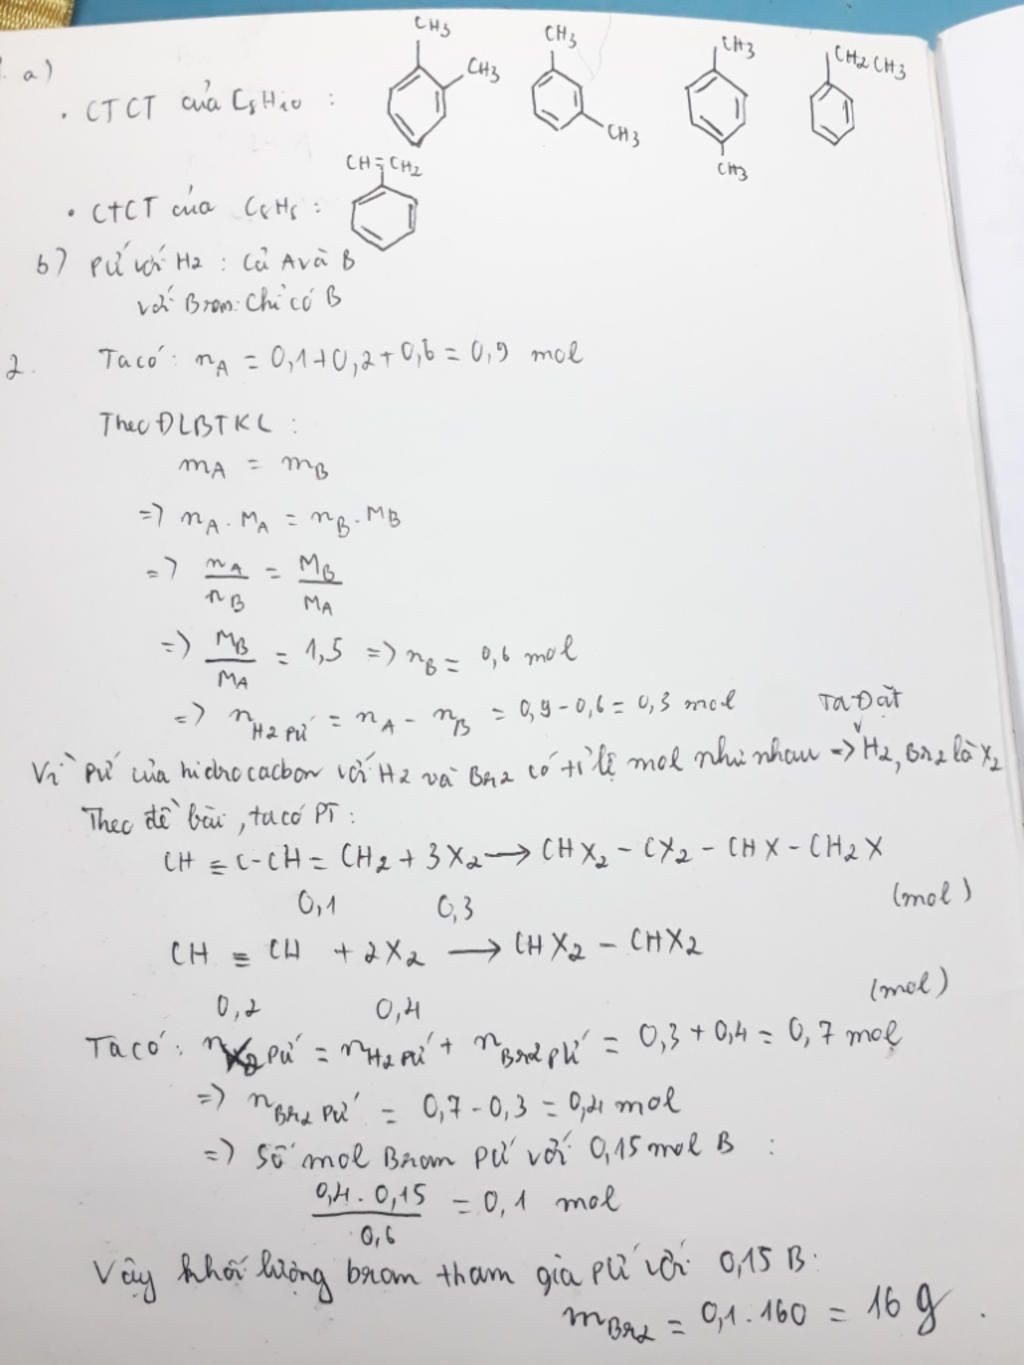 1. a)
CH3 CH3 CH3 CH3 CH3 CH3 CH2 CH3
• CTCT của C8H10 :
CH=CH2
• CTCT của C8H8 :
b) PỨ với H2 : Cả A và B
với Brom: Chỉ có B
2. Ta có : nA = 0,1+0,2+0,6 = 0,9 mol
Theo ĐLBTKL :
mA = mB
=> nA . MA = nB . MB
=> nA/nB = MB/MA
=> MB/MA = 1,5 => nB = 0,6 mol
=> nH2 PỨ = nA - nB = 0,9 - 0,6 = 0,3 mol
Ta Đặt
Vì PỨ của hidrocacbon với H2 và Br2 có tỉ lệ mol như nhau => H2, Br2 là X2
Theo đề bài, ta có PT :
CH ≡ C-CH = CH2 + 3X2 → CHX2 - CX2 - CHX - CH2X
0,1 0,3 (mol)
CH ≡ CH + 2X2 → CHX2 - CHX2
0,2 0,4 (mol)
Ta có : nX2 PỨ = nH2 PỨ + nBr2 PỨ = 0,3 + 0,4 = 0,7 mol
=> nBr2 PỨ = 0,7 - 0,3 = 0,4 mol
=> Số mol Brom PỨ với 0,15 mol B :
0,4 . 0,15 / 0,6 = 0,1 mol
Vậy khối lượng brom tham gia PỨ với 0,15 B :
mBr2 = 0,1 . 160 = 16 g .